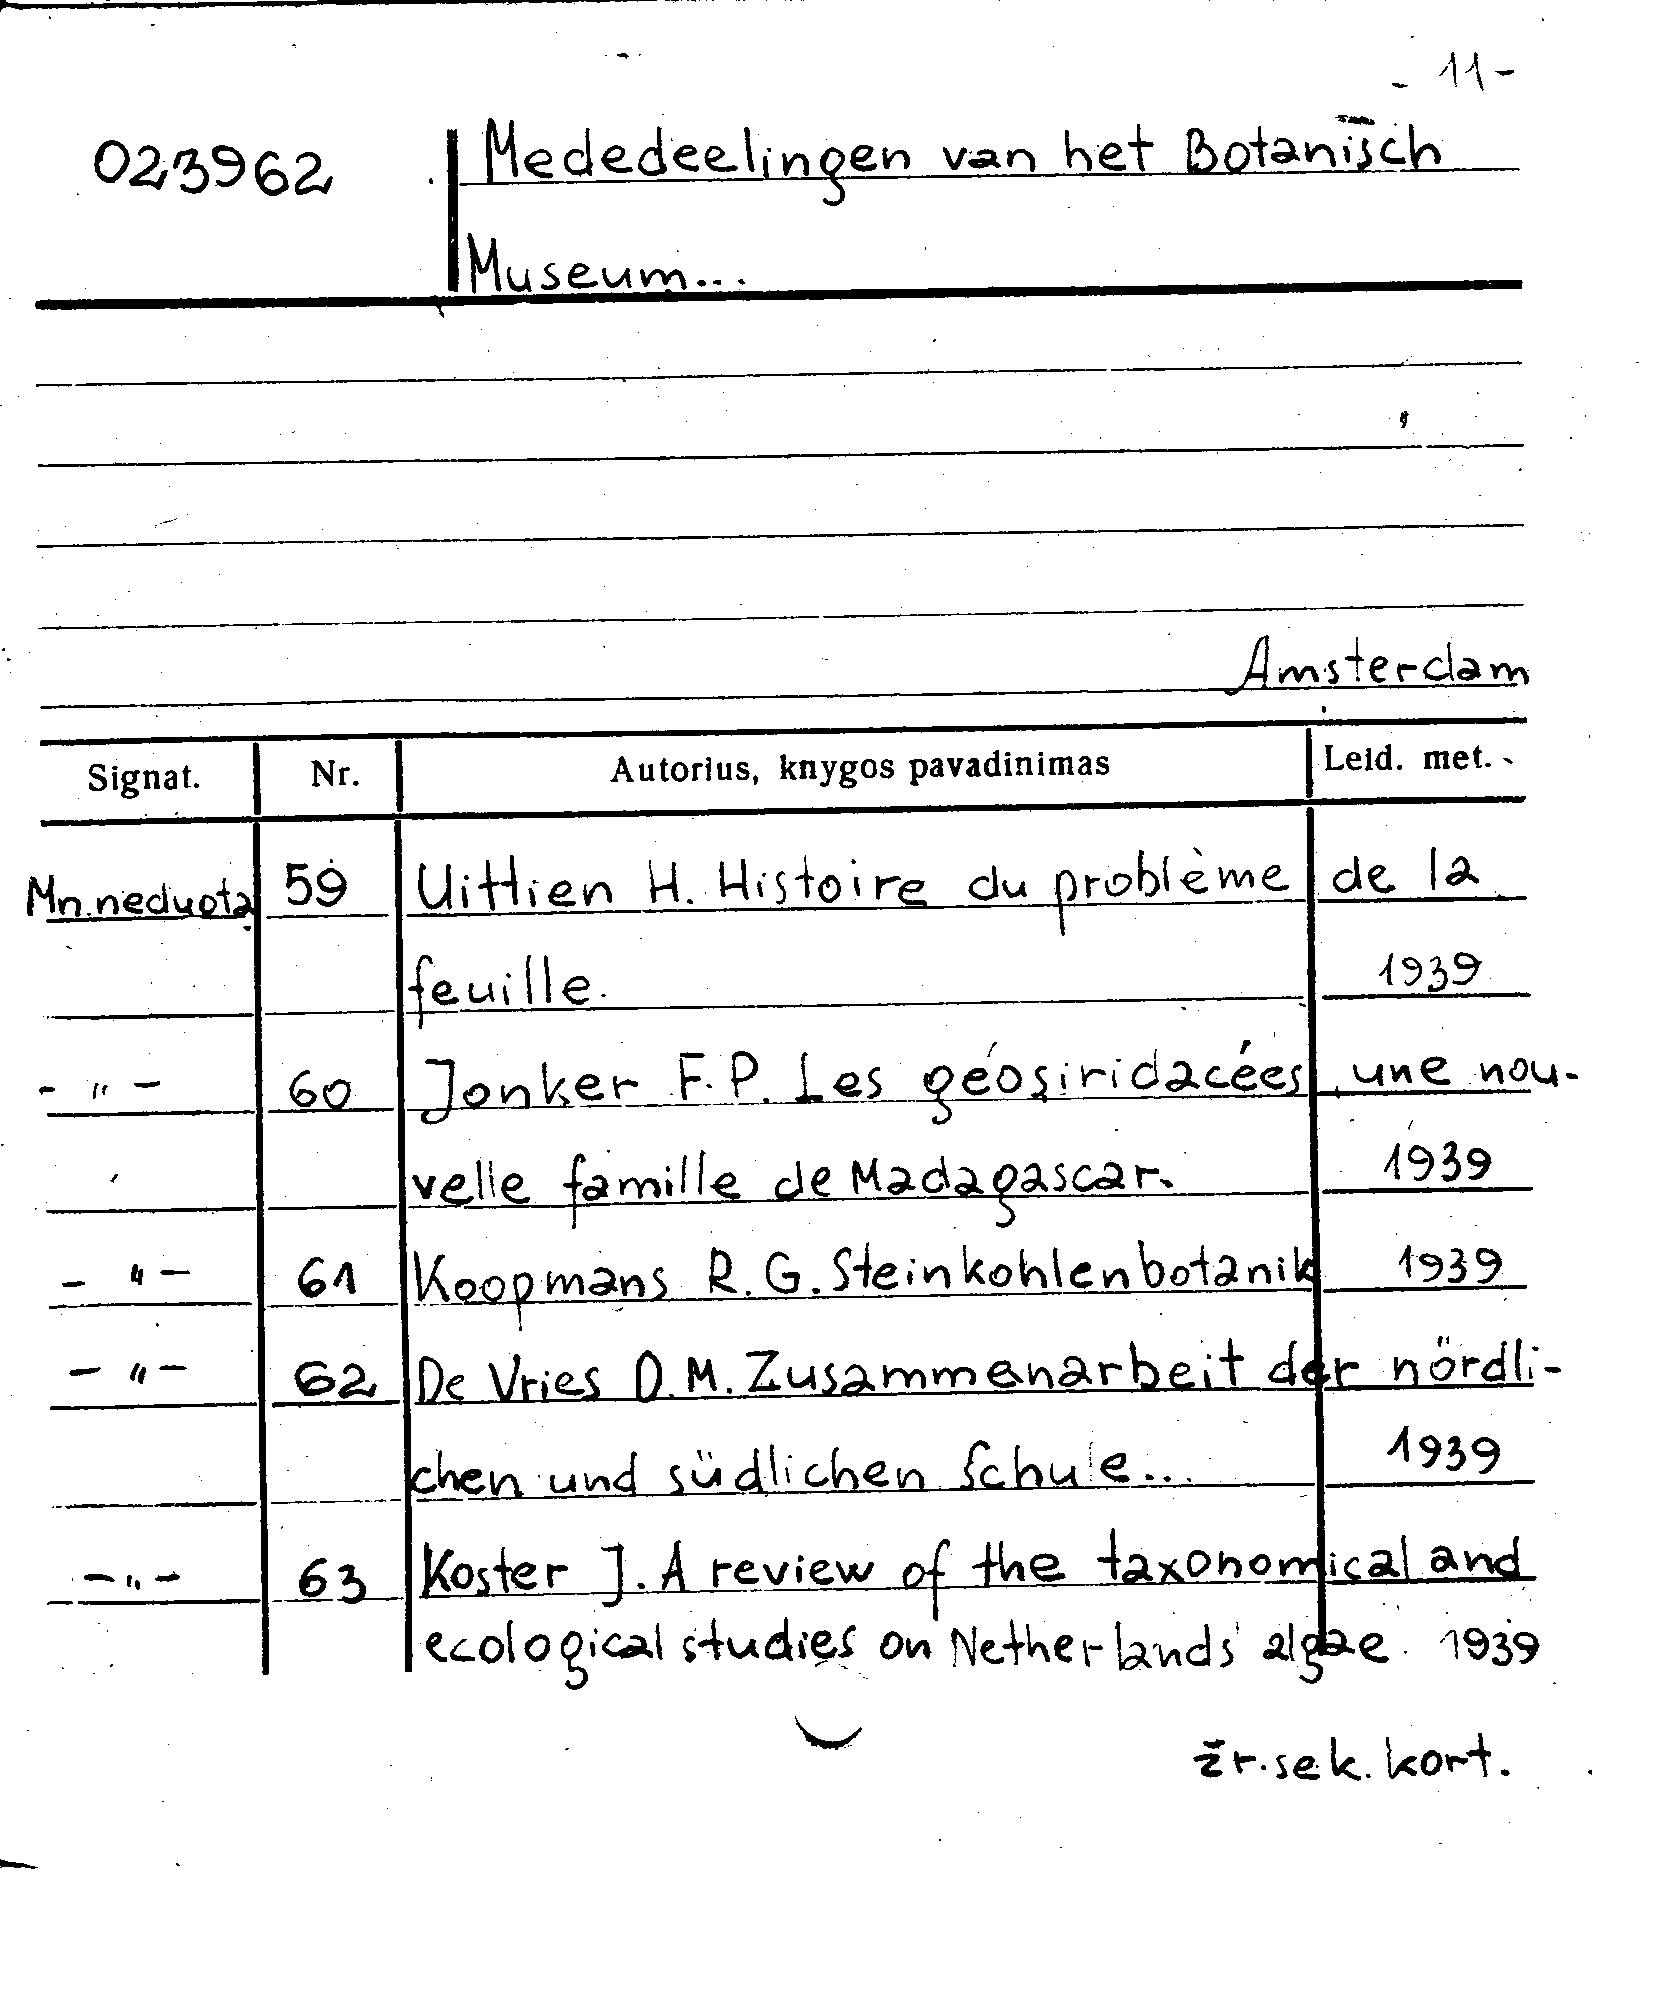 - 11 -
023962 Mededeelingen van het Botanisch
Museum...
Amsterdam
Signat. Nr. Autorius, knygos pavadinimas Leid. met.
Mn.neduota 59 Uittien H. Histoire du problème de la
feuille. 1939
- " - 60 Jonker F.P. Les géosiridacées, une nou-
velle famille de Madagascar. 1939
- " - 61 Koopmans R.G. Steinkohlenbotanik 1939
- " - 62 De Vries D.M. Zusammenarbeit der nördli-
chen und südlichen Schule... 1939
- " - 63 Koster J. A review of the taxonomical and
ecological studies on Netherlands' algae. 1939
žr.sek.kort.